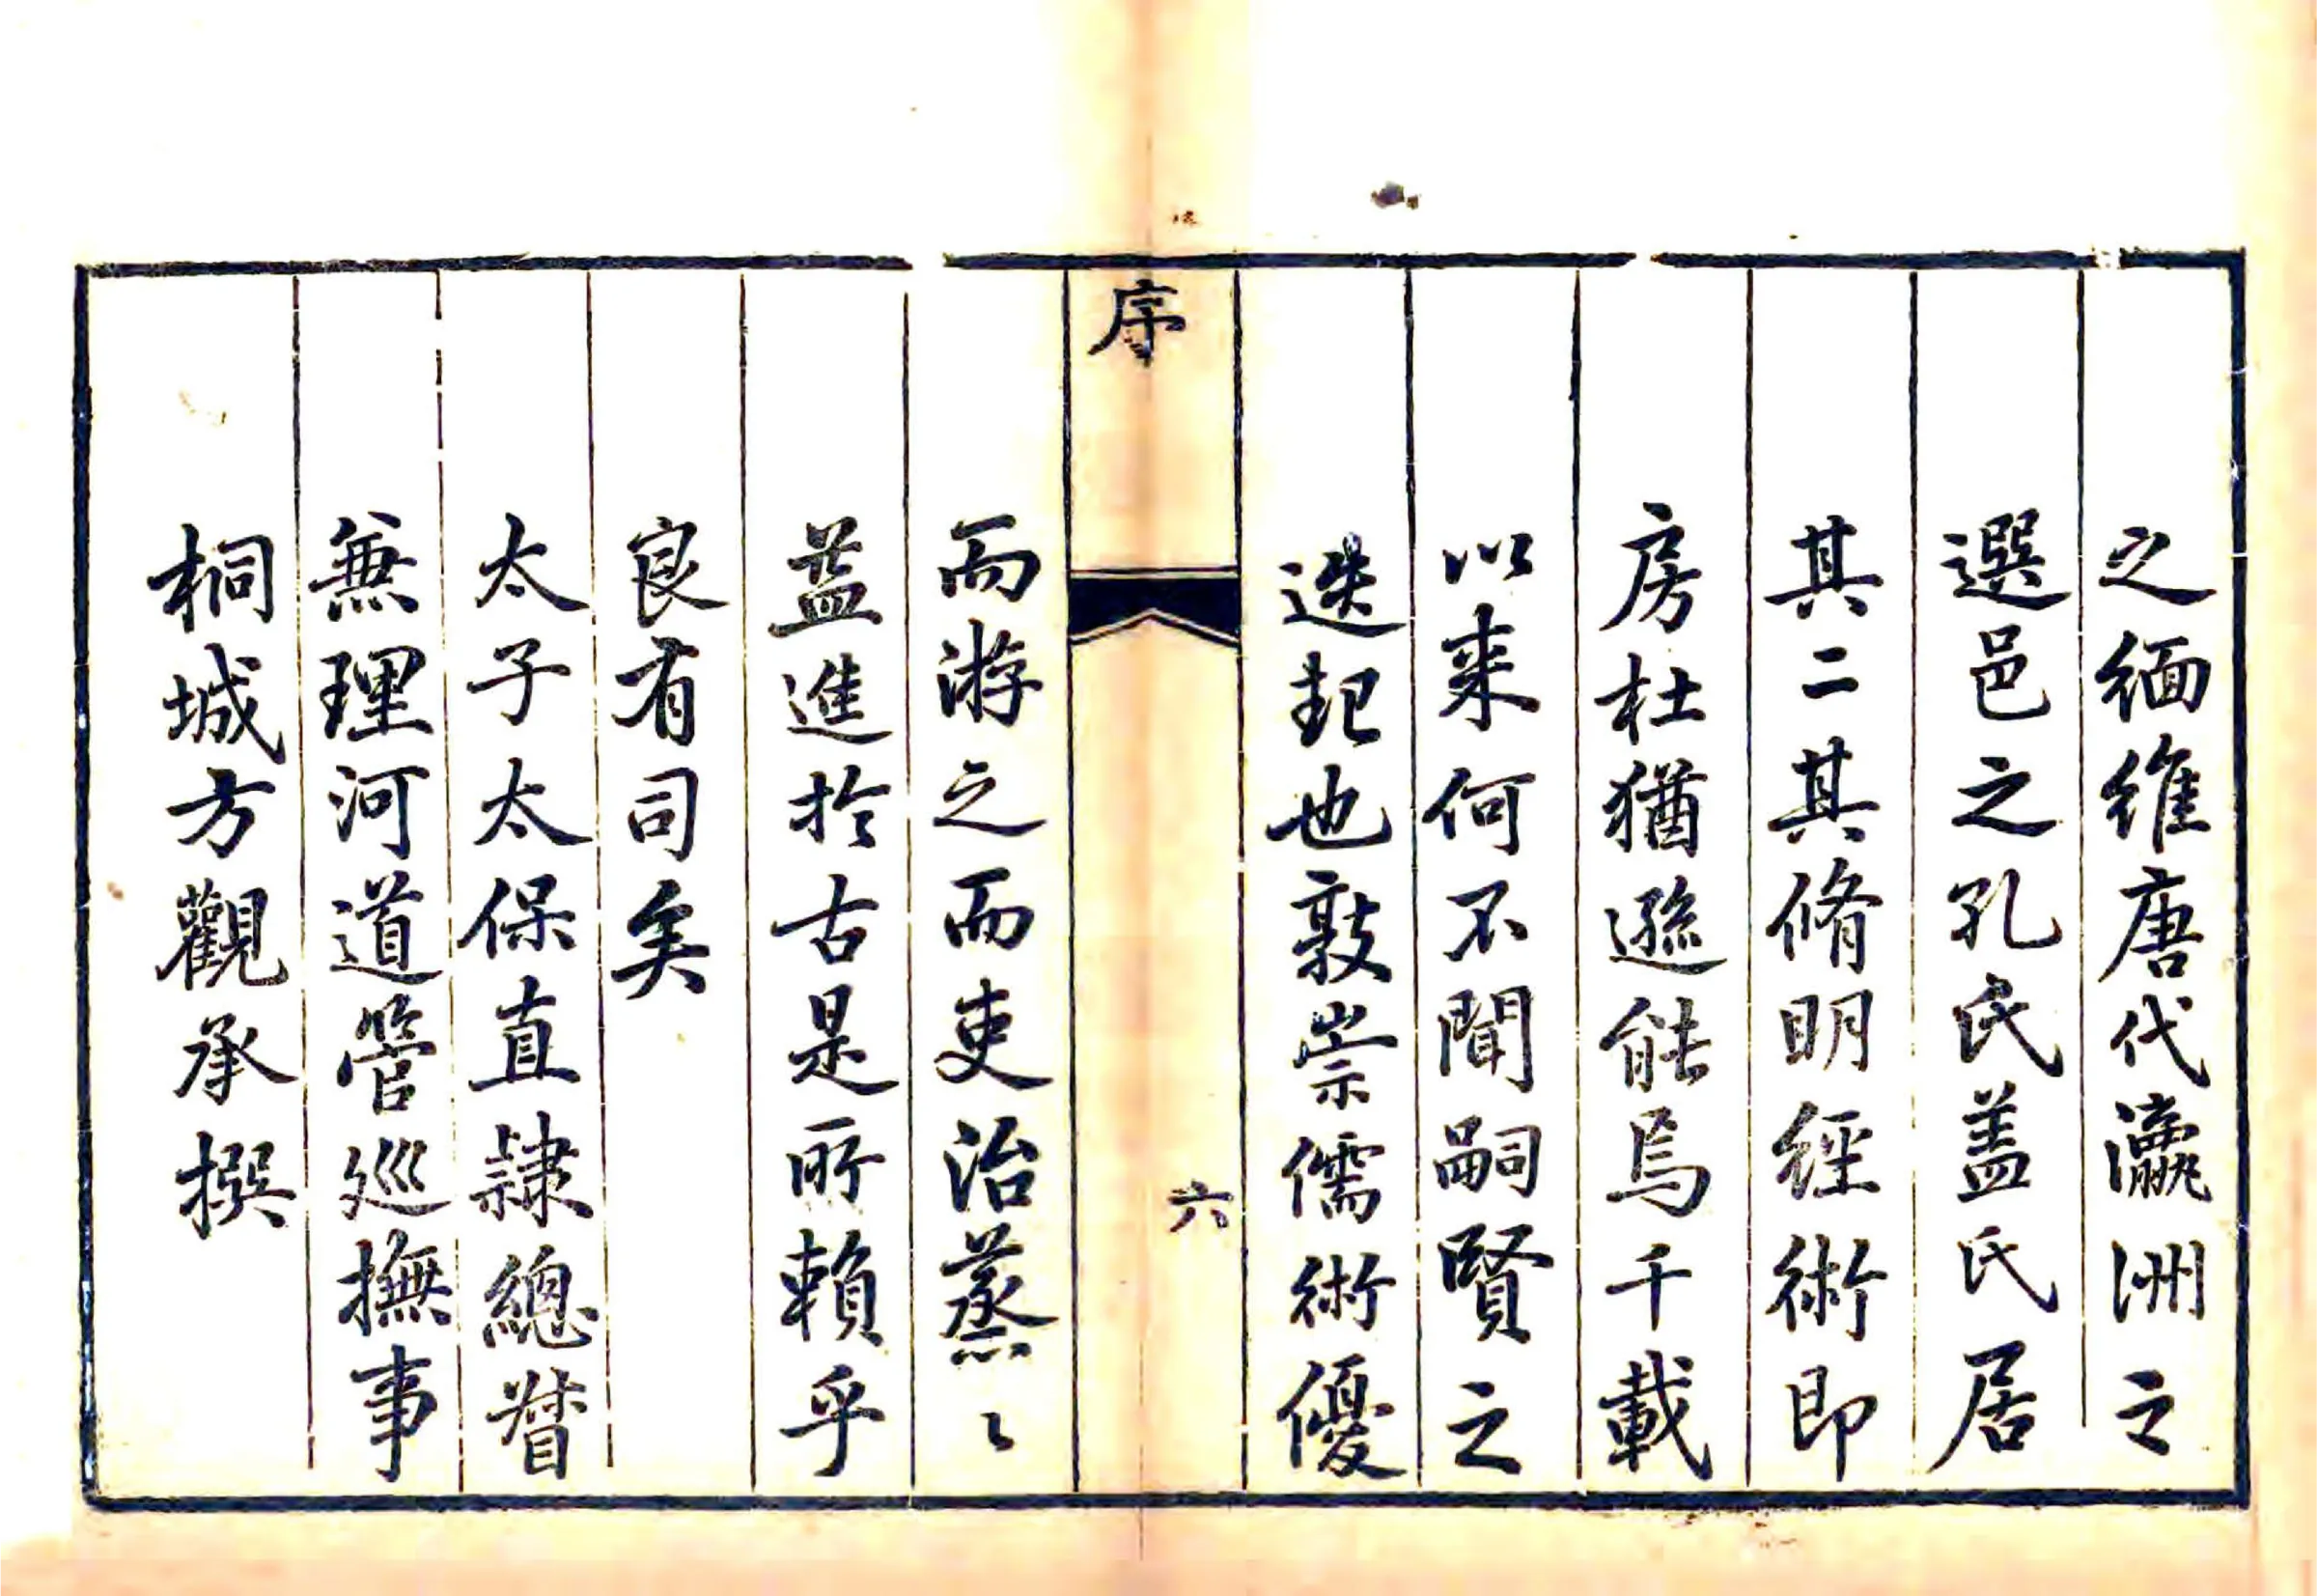 之緬維唐代瀛洲之
選邑之孔氏蓋氏居
其二其脩明經術即
房杜猶遜能焉千載
以來何不聞嗣賢之
迭起也敦崇儒術優
序
六
而游之而吏治蒸〻
益進於古是所賴乎
良有司矣
太子太保直隸總督
兼理河道管巡撫事
桐城方觀承撰